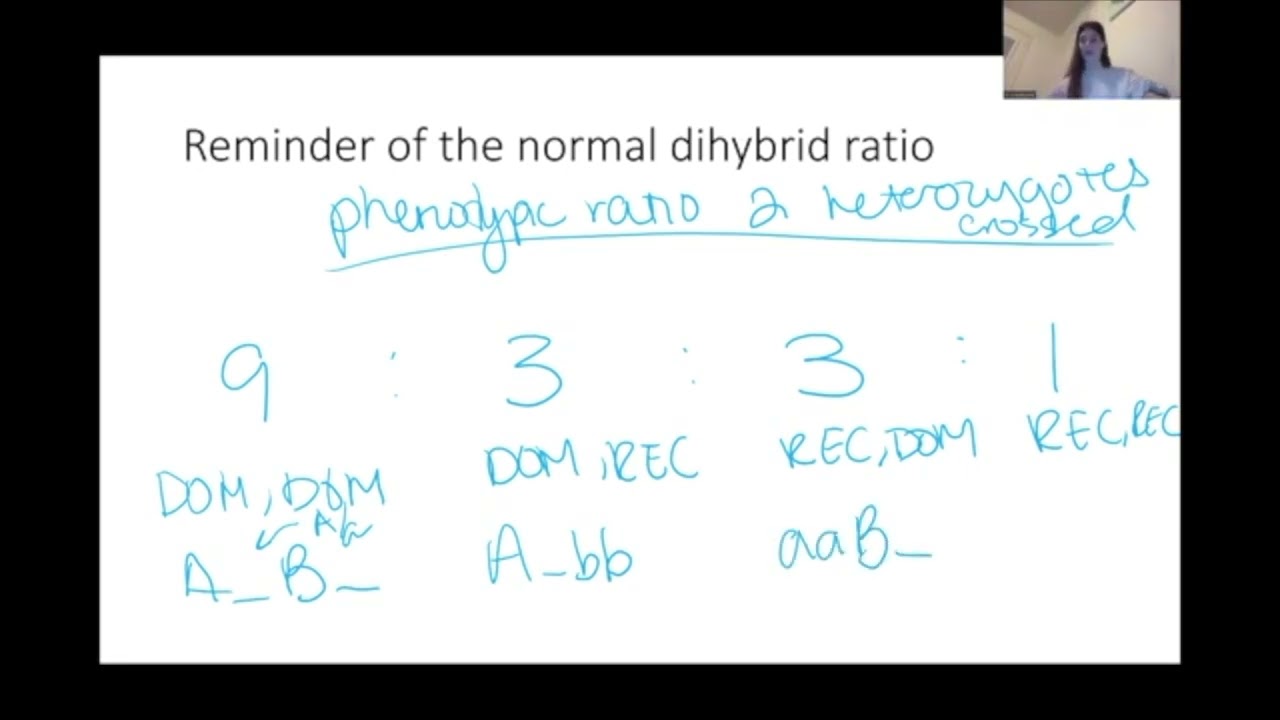 Reminder of the normal dihybrid ratio
phenotypic ratio 2 heterozygotes
crossed
9 : 3 : 3 : 1
DOM, DOM DOM, REC REC, DOM REC, REC
A_B_ A_bb aaB_